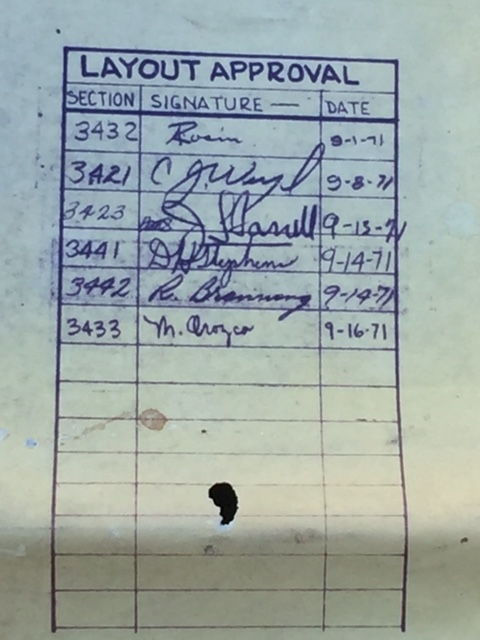 LAYOUT APPROVAL
SECTION SIGNATURE — DATE
3432 9-1-71
3421 C J. 9-8-71
3423 9-13-71
3441 DH Stephens 9-14-71
3442 R. 9-14-71
3433 M. Orozco 9-16-71